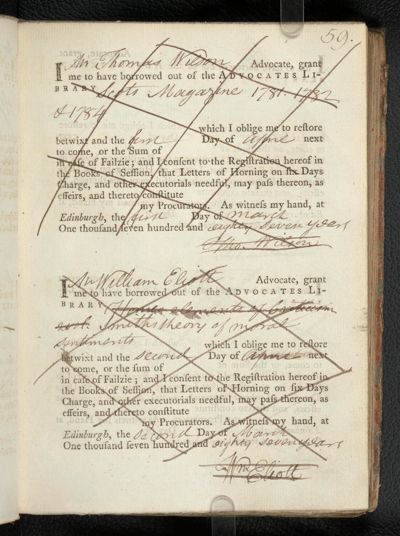 59.
I Mr Thomas Wilson Advocate, grant
me to have borrowed out of the ADVOCATES LI-
BRARY Scots Magazine 1781. 1782
& 1784
which I oblige me to reſtore
betwixt and the first Day of April next
to come, or the Sum of
in caſe of Failzie; and I conſent to the Regiſtration hereof in
the Books of Seſſion, that Letters of Horning on ſix Days
Charge, and other executorials needful, may paſs thereon, as
effeirs, and thereto conſtitute
my Procurators. As witneſs my hand, at
Edinburgh, the first Day of March
One thouſand ſeven hundred and eighty seven years
Tho. Wilson
I Mr William Eliott Advocate, grant
me to have borrowed out of the ADVOCATES LI-
BRARY Homes elements of Criticism
Smiths theory of moral
sentiments which I oblige me to reſtore
betwixt and the second Day of April next
to come, or the ſum of
in caſe of Failzie; and I conſent to the Regiſtration hereof in
the Books of Seſſion, that Letters of Horning on ſix Days
Charge, and other executorials needful, may paſs thereon, as
effeirs, and thereto conſtitute
my Procurators. As witneſs my hand, at
Edinburgh, the second Day of March
One thouſand ſeven hundred and eighty seven years
Wm Eliott